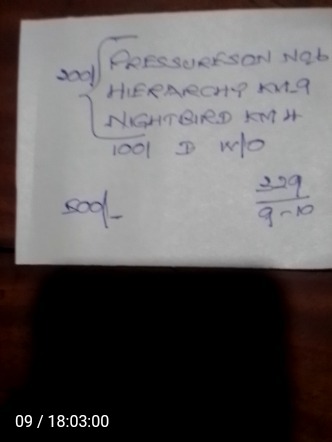 PRESSURESON NO.6
2001 HIERARCHY KM.9
NIGHTBIRD KM 4
1001 D W/O
500/-
229
9-10
09 / 18:03:00